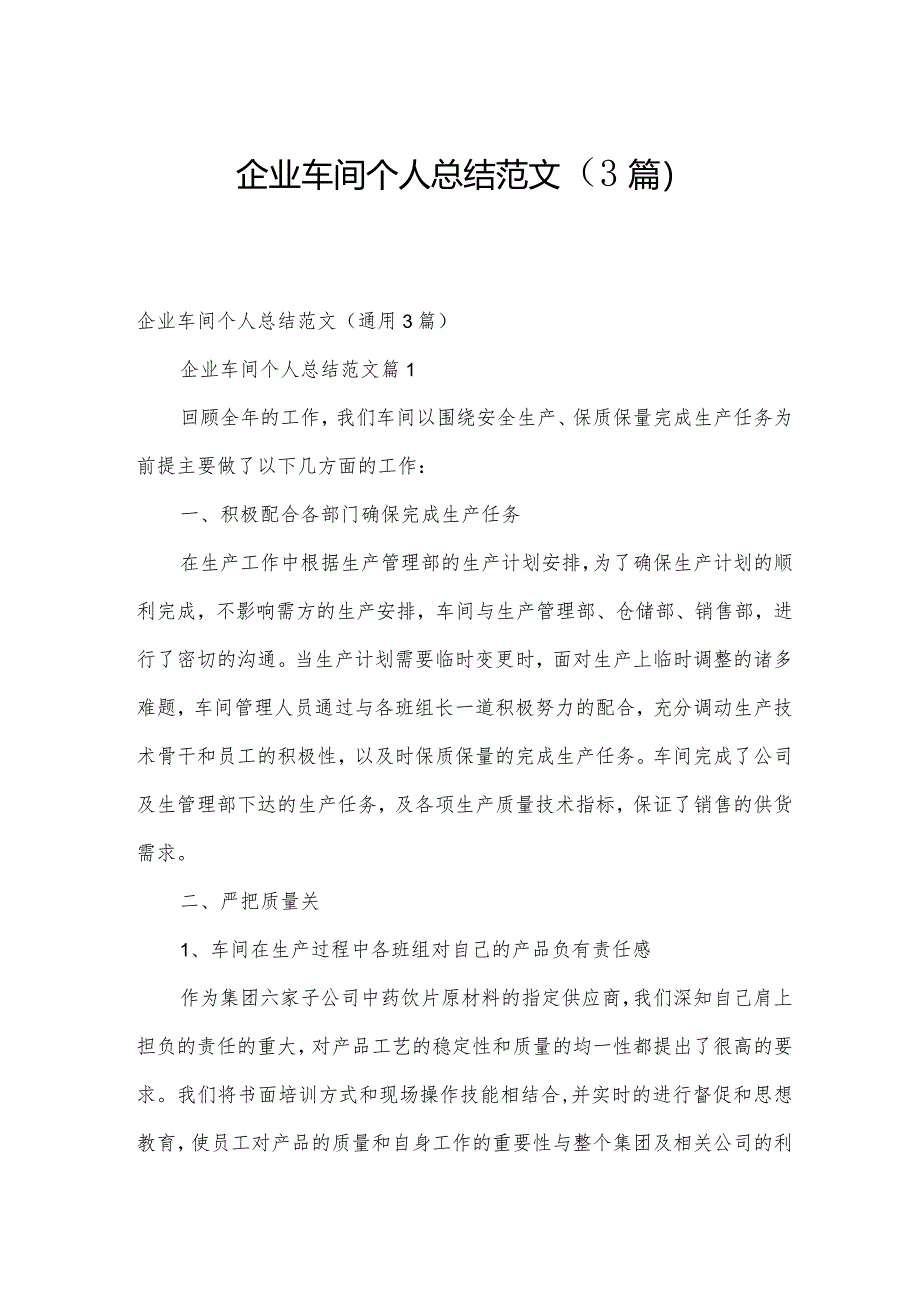 企业车间个人总结范文（3 篇）
企业车间个人总结范文（通用 3 篇）
企业车间个人总结范文篇 1
回顾全年的工作，我们车间以围绕安全生产、保质保量完成生产任务为
前提主要做了以下几方面的工作：
一、积极配合各部门确保完成生产任务
在生产工作中根据生产管理部的生产计划安排，为了确保生产计划的顺
利完成，不影响需方的生产安排，车间与生产管理部、仓储部、销售部，进
行了密切的沟通。当生产计划需要临时变更时，面对生产上临时调整的诸多
难题，车间管理人员通过与各班组长一道积极努力的配合，充分调动生产技
术骨干和员工的积极性，以及时保质保量的完成生产任务。车间完成了公司
及生管理部下达的生产任务，及各项生产质量技术指标，保证了销售的供货
需求。
二、严把质量关
1、车间在生产过程中各班组对自己的产品负有责任感
作为集团六家子公司中药饮片原材料的指定供应商，我们深知自己肩上
担负的责任的重大，对产品工艺的稳定性和质量的均一性都提出了很高的要
求。我们将书面培训方式和现场操作技能相结合,并实时的进行督促和思想
教育，使员工对产品的质量和自身工作的重要性与整个集团及相关公司的利